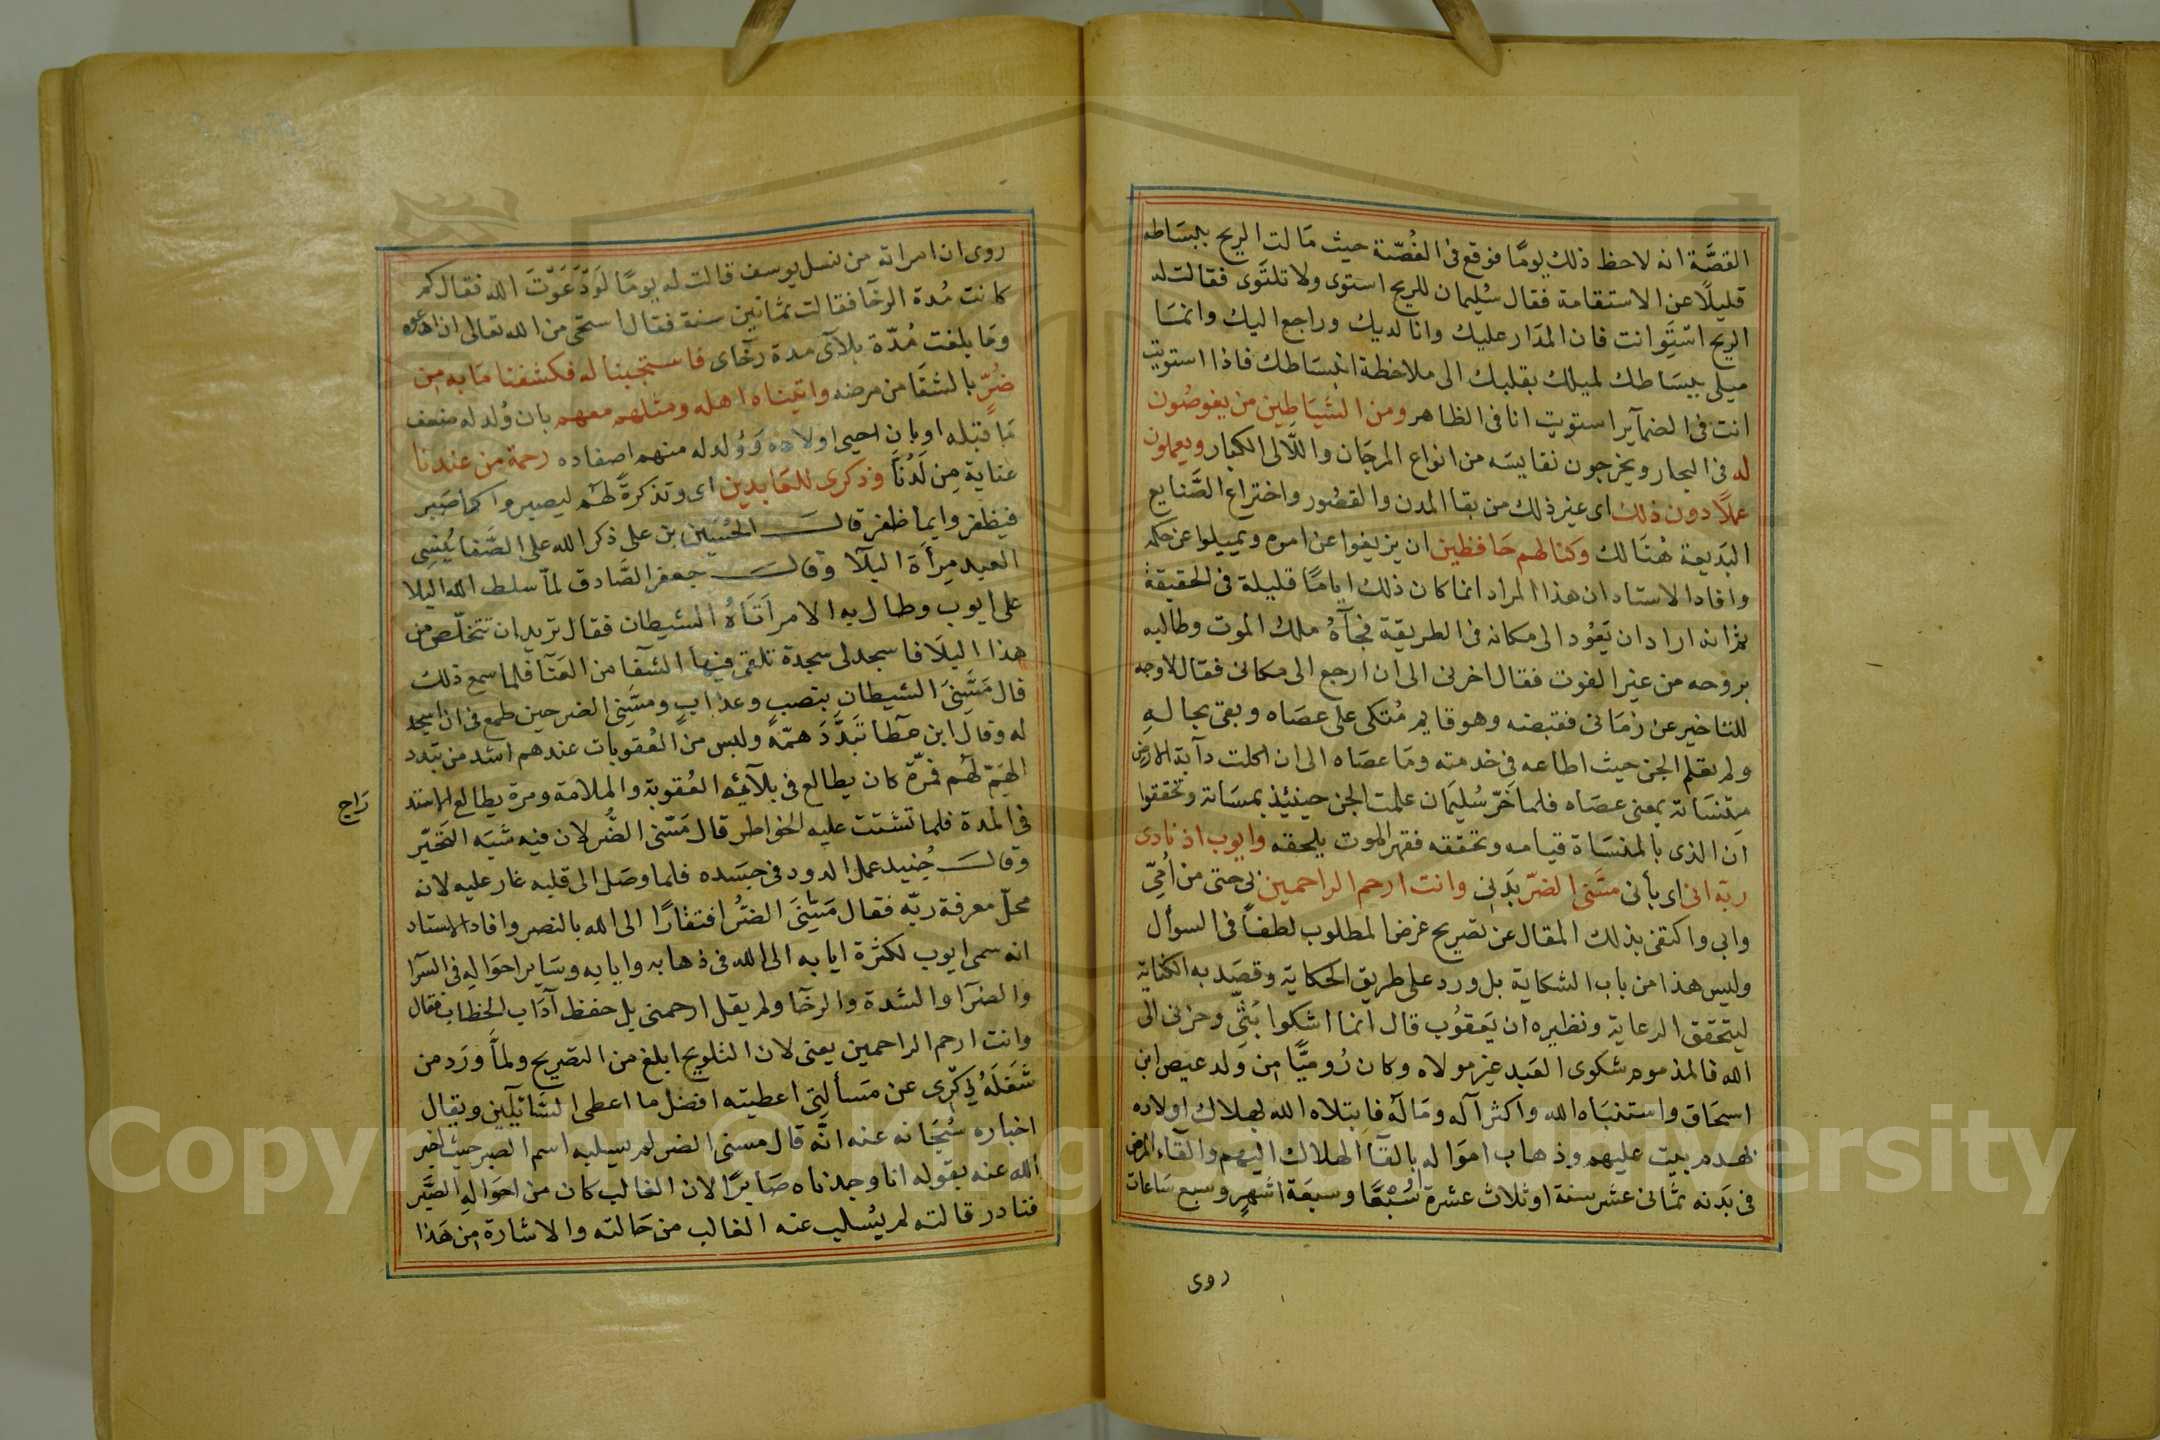 القصَّة انه لاحظ ذلك يومًا فوقع فى الغُصّة حيث مَالت الريح ببسَاطه
قليلًا عن الاستقامة فقال سُليمان للريح استوى ولا تلتَوى فقالت له
الريح اسْتَوِ انت فان المدَار عليك وانا لديك وراجع اليك وانمَا
ميلى ببسَاطك لميلك بقلبك الى ملاحظة انبسَاطك فاذا استويت
انت فى الضمآير استويت انا فى الظاهر ومن الشيَاطِين من يغوصُون
له فى البحار ويخرجون نفايسَه من انواع المرجَان واللَّالى الكبار ويعملون
عملًا دون ذلك اى غير ذلك من بقا المدن والقصُور واختراع الصَّنايع
البَديعة هُنَالك وكنا لهم حَافظين ان يزيغوا عن اموه ويميلوا عن حكمه
وافاد الاستاد ان هذا المراد انما كان ذلك ايامًا قليلة فى الحقيقة
ثم انه اراد ان يَعُود الى مكانه فى الطريقة فجآهُ ملك الموت وطالبه
بروْحه من غير الفوت فقال اخرنى الى ان ارجع الى مكانى فقال لا وجه
للتاخير عن زمَانى فقبضه وهو قايم مُتكى على عصَاه وبقى بحالهِ
ولم يعلم الجن حيث اطاعه فى خدمته ومَا عصَاه الى ان اكلت دآبة الارض
مِنْسَاته يعنى عصَاه فلما خَرّ سُليمَان علمت الجن حينئذ بمسَاتة وتحققوا
ان الذى بالمنسَاة قيامه وتحققه فقهر الموت يلحقه وايوب اذ نادى
ربَه انى اى بأنى مسَّنى الضرّ بَدَنِى وانت ارحم الراحمين بى حتى من اُمِّى
وابى واكتفى بذلك المقال عن تصريح غرض المطلوب لطفاً فى السوأل
وليس هذا من باب الشكاية بل ورد على طريق الحكاية وقصَد به الكناية
ليتحقق الرعاية ونظيره ان يَعقوُب قال انما اشكوا بَثّى وحزنى الى
الله فالمذموم شكوى العَبد غير مولاه وكان رُوميًّا من ولد عيص ابن
اسحَاق واستنبَاه الله واكثر آله ومَاله فابتلاه الله بهلاك اولاده
بهدم بيت عليهم وذهاب اموَاله بالقآ الهلاك اليهم والقآء المرض
فى بَدنه ثمَانى عشر سنة او ثلاث عشرة اسُبْعًا وسبعَة اشهرٍ وسبع سَاعات
روى
روى ان امراته من نسل يوسف قالت له يومًا لَوَدَعَوْتَ الله فقال كم
كانت مُدة الرخآ فقالت ثمَانين سنة فقال استحى من الله تعالى ان ادعوه
ومَا بلغت مُدّة بلآى مدة رخآى فاستجبنا له فكشفنا مَا به من
ضُرٍّ بالشفَا من مرضه واتينَاه اهله ومثلهم معهم بان وُلد له ضعف
مَا قبله او بان احيى اولاده وَوُلد له منهم اصفاده رحمة من عندنا
عناية مِن لَدُنَّا وذكرى للعَابدين اى وتذكرةً لهُم ليصبروا كما صَبر
فيظفر وايما ظفر قالــــ الحُسَين بن على ذكر الله على الصَّفا يُنسِى
العبد مِرأة البلآ وقالــــ جعفر الصَّادق لمّا سلط الله البلا
على ايوب وطال به الامر اَتَاهُ الشيطان فقال تريد ان تتخلّص من
هذا البلَا فاسجد لى سجدة تلقى فيها الشفا من العَنآ فلما سمع ذلك
قال مَسَّنِىَ الشيطان بنصبٍ وعذابٍ ومسَّنِى الضر حين طمع فى ان اسجد
له وقال ابن عطآ تَبَدَّدَ همّهُ وليس من العُقوبات عندهم اشد من تبدد
الهَمّ لهُم فمرَّة كان يطالع فى بلآئه العُقوبة والملامة ومرة يطالع الاستد
راج
فى المدة فلما تشتت عليه الخواطر قال مَسّنى الضُّر لان فيه شبَه التَحَيّر
وقالــــ جُنيد عمل الدود فى جسَده فلما وصَل الى قلبه غار عليه لانه
محلّ معرفة ربّه فقال مَسَّنِىَ الضُرُ افتقارًا الى الله بالنصر وافاد الاستاد
انه سمى ايوب لكثرة ايابه الى الله فى ذهابه وايابه وسَاير احوَالهِ فى السَرآ
والضرآ والشدة والرخآ ولم يقل ارحمنى بل حفظ آدَاب الخطاب فقال
وانت ارحم الراحمين يعنى لان التلويح ابلغ من التصريح ولمَّا ورَد من
شَغَلَهُ ذِكّرى عن مَسألتِى اعطيته افضل ما اعطى السَّائِلِين ويقال
اخباره سُبحَانه عنه انّه قال مسنى الضر لم يسلبه اسم الصبر حيث اخبر
الله عنه بقوله انا وجدناه صَابرًا لان الغالب كان من احوَالهِ الصّبَر
فنادر قالته لم يُسلب عنه الغالب من حَالته والاشارة مِن هَذا
Copyright © King Saud University